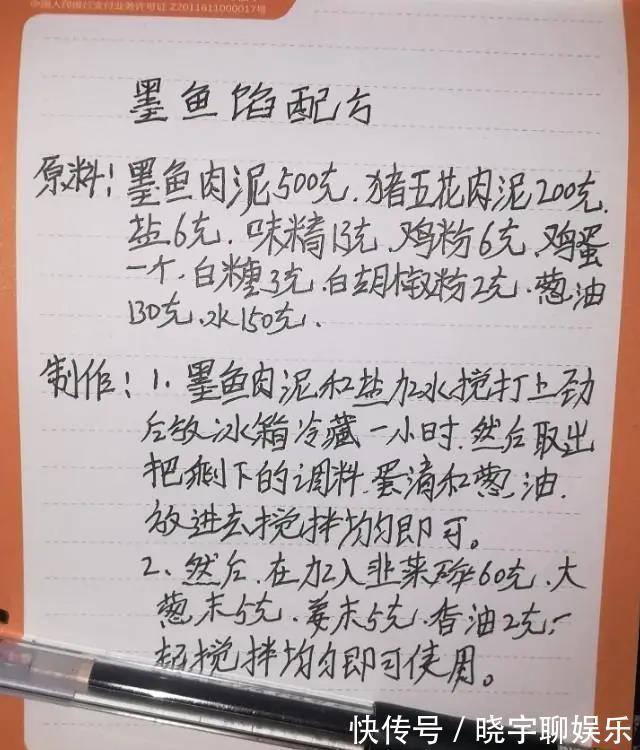 中国人民银行支付业务许可证Z2011611000017号
墨鱼馅配方
原料：墨鱼肉泥500克.猪五花肉泥200克.
盐6克.味精13克.鸡粉6克.鸡蛋
一个.白糖3克.白胡椒粉2克.葱油
130克.水150克.
制作：1.墨鱼肉泥和盐加水搅打上劲
后放冰箱冷藏一小时.然后取出
把剩下的调料.蛋清和葱油.
放进去搅拌均匀即可。
2、然后.在加入韭菜碎60克.大
葱末5克.姜末5克.香油2克.一
起搅拌均匀即可使用。
快传号/晓宇聊娱乐